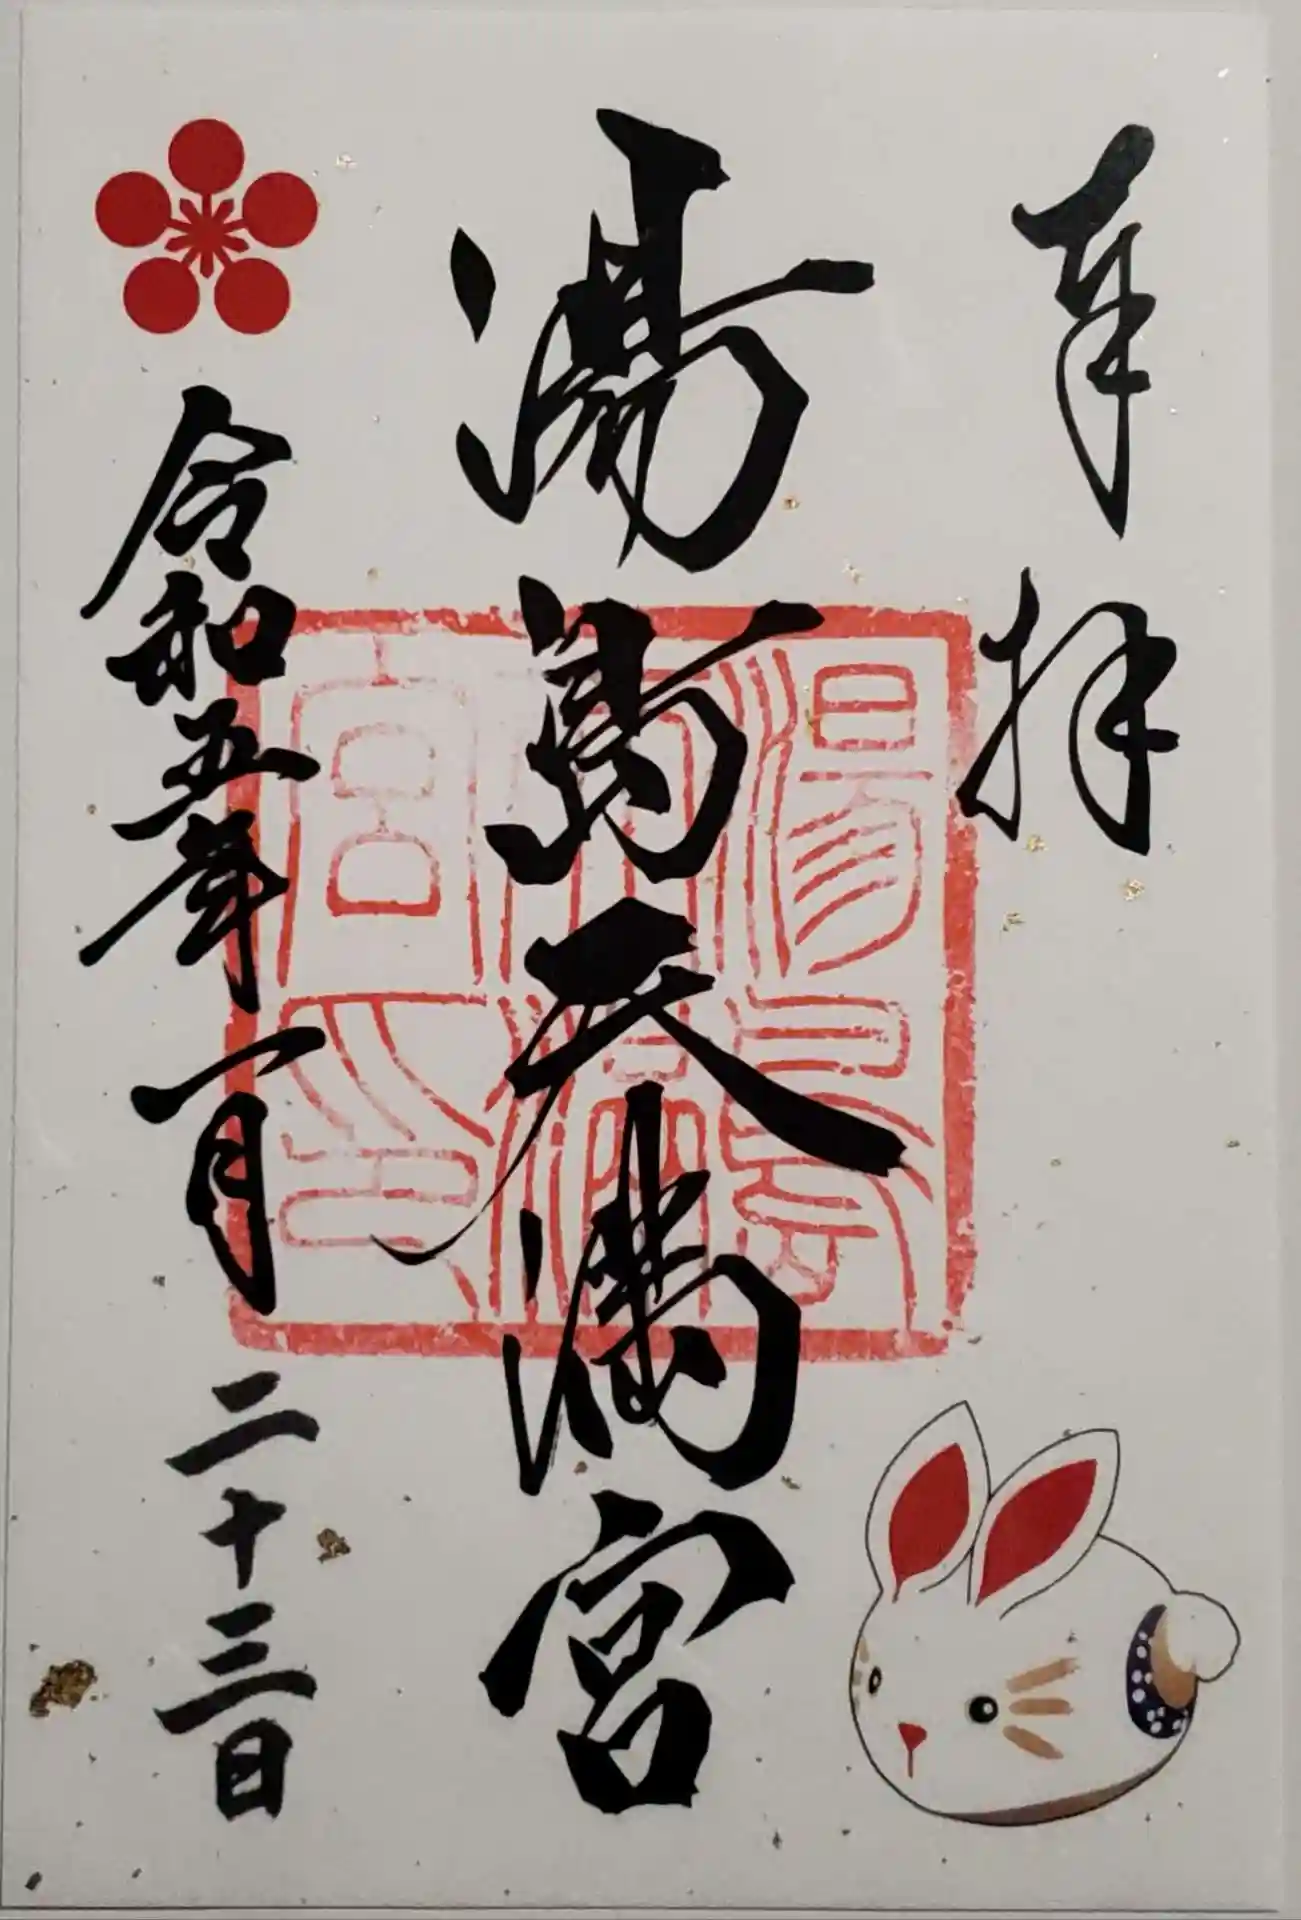 奉拝
湯島天満宮
令和五年一月二十三日
湯島天満宮印